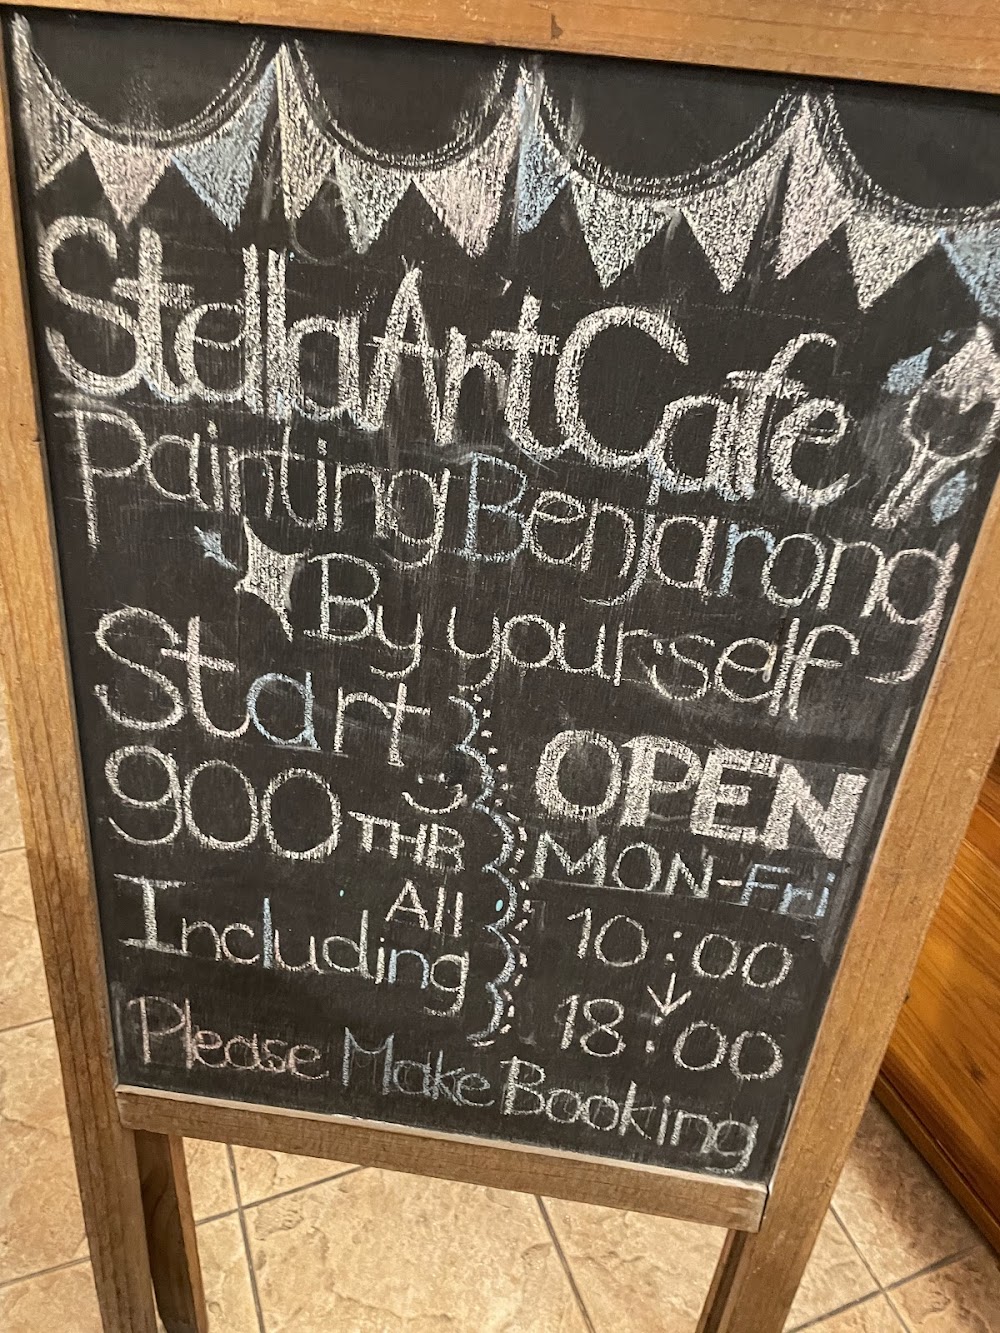 Stella Art Cafe
Painting Benjarong
By yourself
Start
900 THB
All
Including
OPEN
MON-Fri
10:00
18:00
Please Make Booking